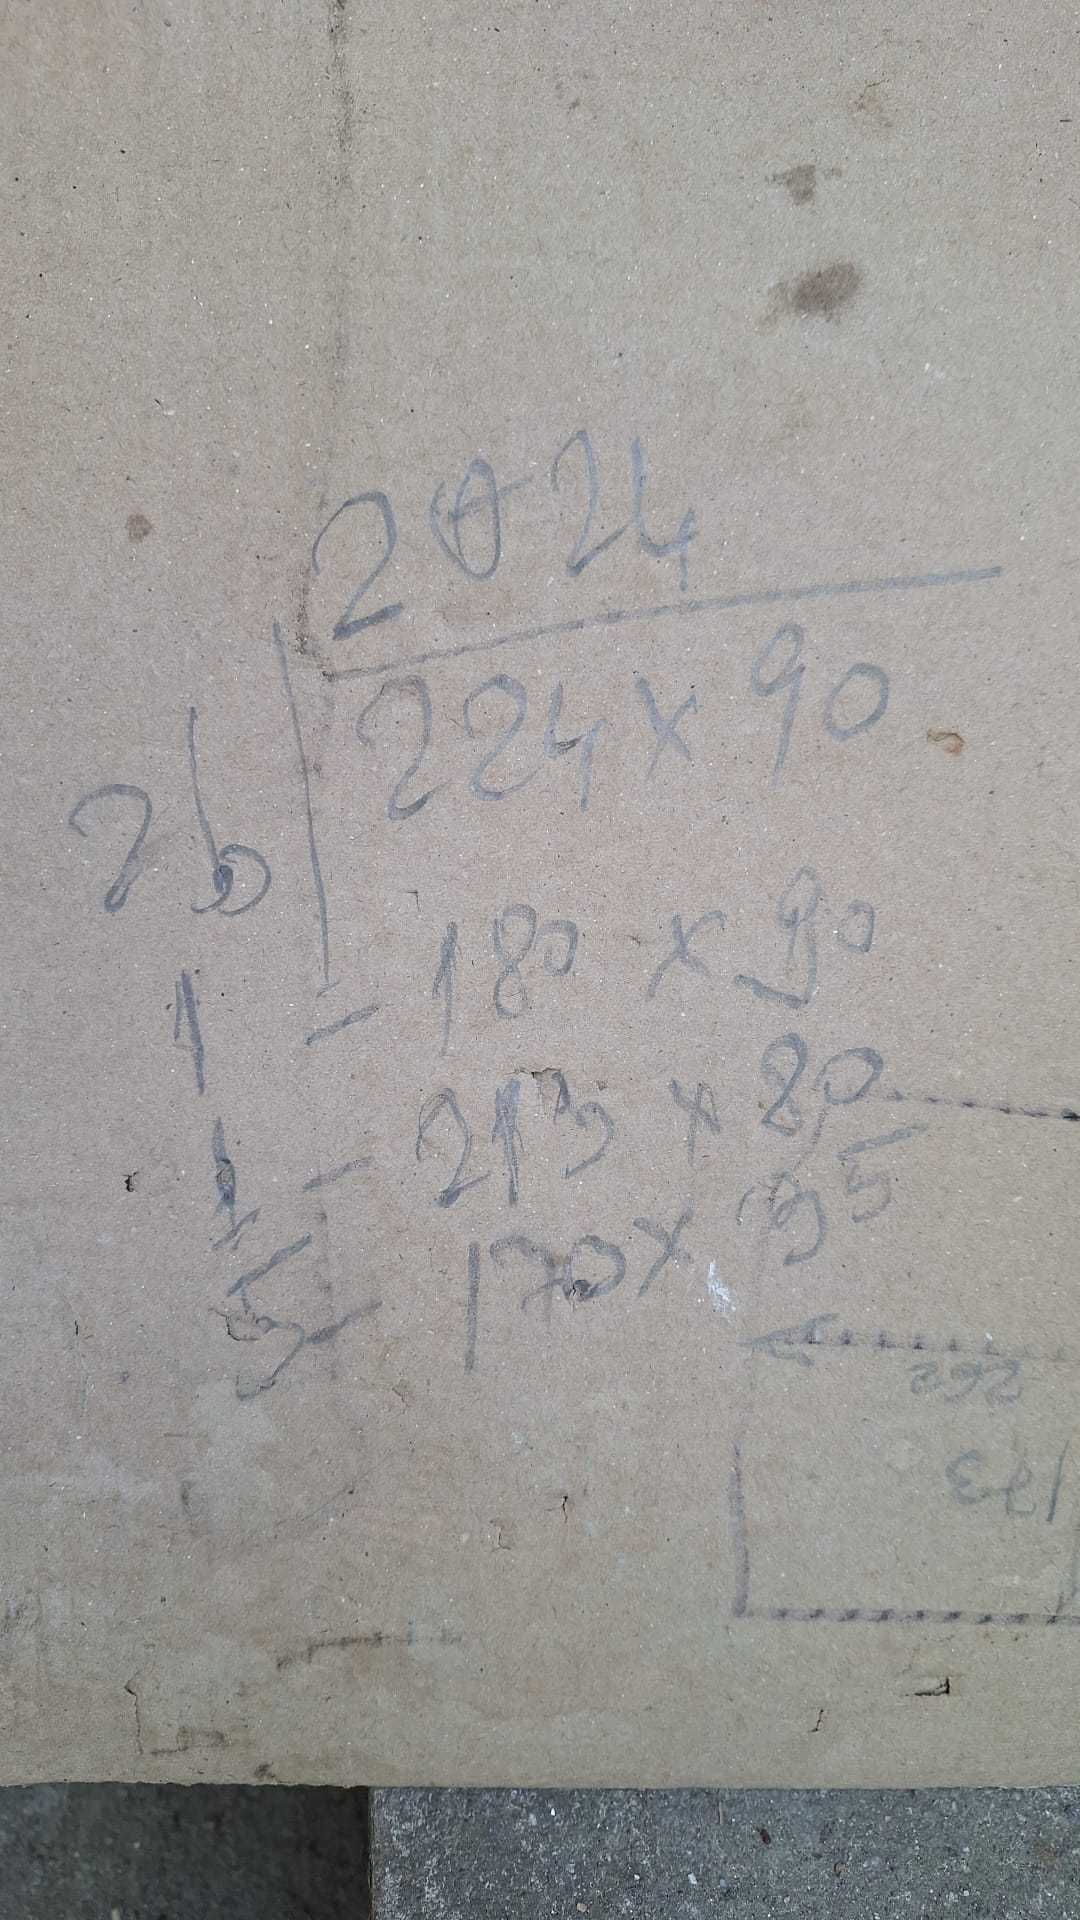 2024
26 224 x 90
1 - 180 x 90
1 - 213 x 80
5 - 170 x 95
262
173